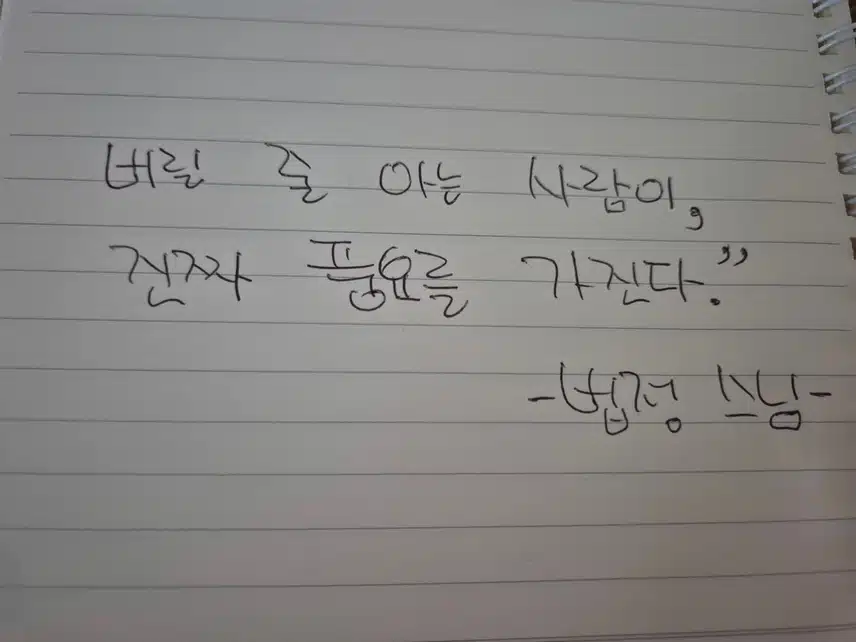 버릴 줄 아는 사람이,
진짜 풍요를 가진다.”
-법정 스님-